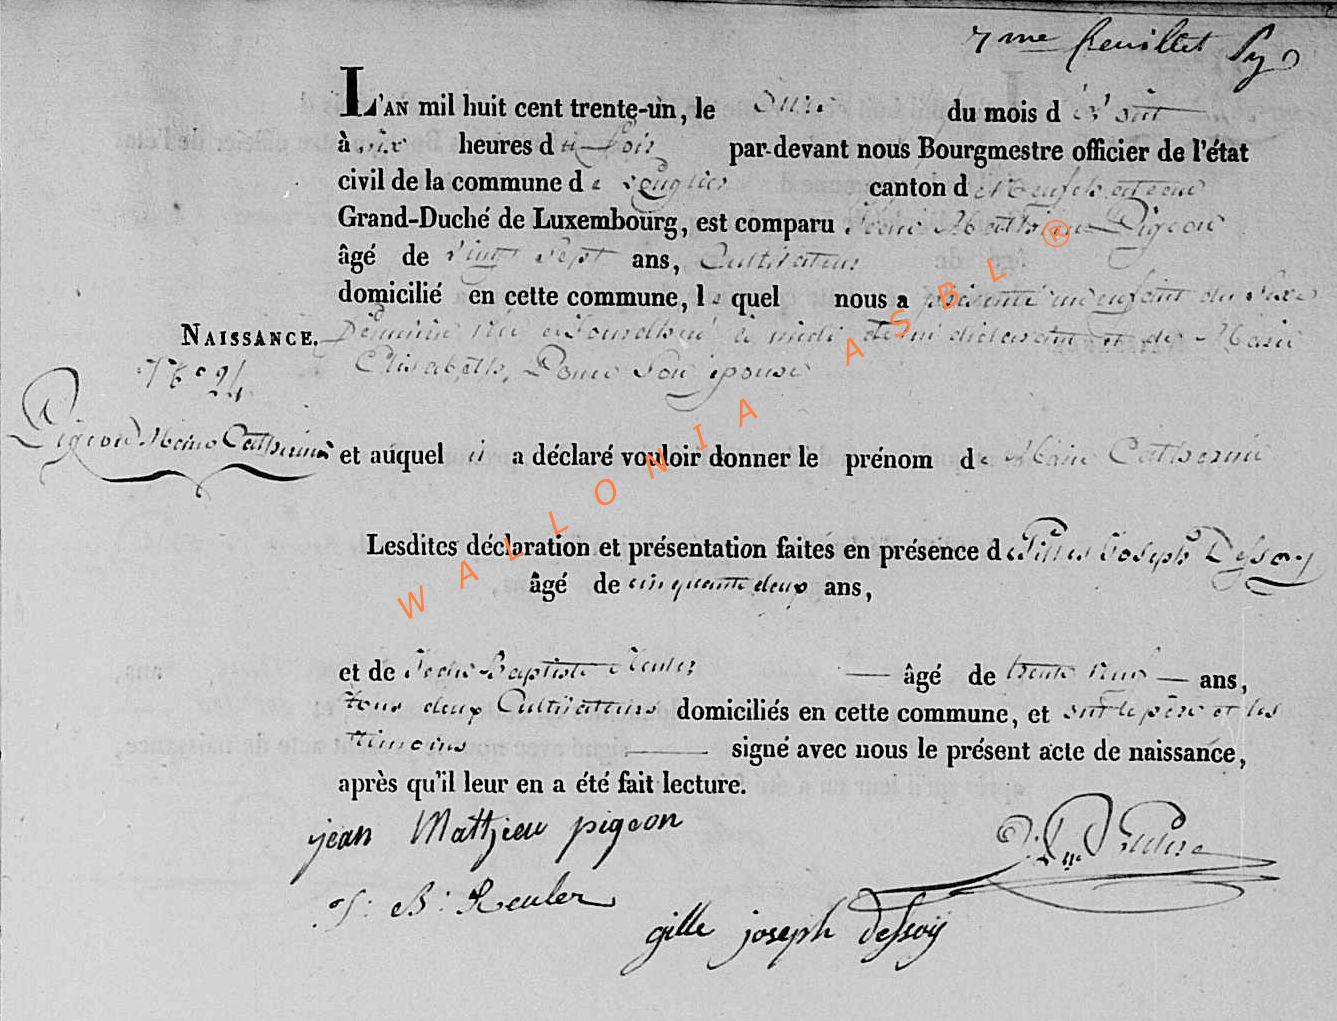 7me feuillet
L'AN mil huit cent trente-un, le onze du mois d'août
à six heures du soir par-devant nous Bourgmestre officier de l'état
civil de la commune de canton de Neufchateau
Grand-Duché de Luxembourg, est comparu Jean Mathieu Pigeon
âgé de vingt sept ans, Cultivateur
domicilié en cette commune, lequel nous a présenté un enfant du Sexe
NAISSANCE. féminin née aujourdhui à midi et de Marie
N° 24 Elisabeth Son épouse
Pigeon Marie Catherine
et auquel il a déclaré vouloir donner le prénom de Marie Catherine
Lesdites déclaration et présentation faites en présence de Gilles Joseph Dessoy
âgé de cinquante deux ans,
et de Jean Baptiste Reuler — âgé de trente — ans,
tous deux Cultivateurs domiciliés en cette commune, et ont le père et les
témoins — signé avec nous le présent acte de naissance,
après qu'il leur en a été fait lecture.
jean Mathieu pigeon
J: B: Reuler
gille joseph dessoÿ
WALLONIA ASBL ®